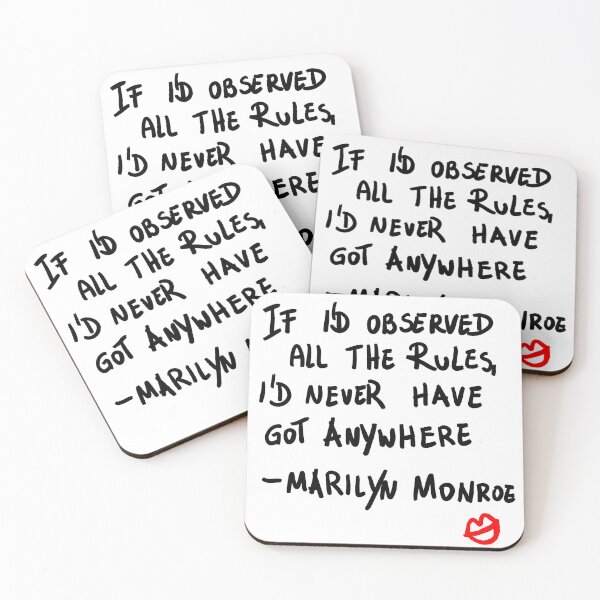 IF I'D OBSERVED
ALL THE RULES,
I'D NEVER HAVE
GOT
IF I'D OBSERVED
ALL THE RULES,
I'D NEVER HAVE
GOT ANYWHERE
IF I'D OBSERVED
ALL THE RULES,
I'D NEVER HAVE
GOT ANYWHERE
—MARILYN
IF I'D OBSERVED
ALL THE RULES,
I'D NEVER HAVE
GOT ANYWHERE
—MARILYN MONROE